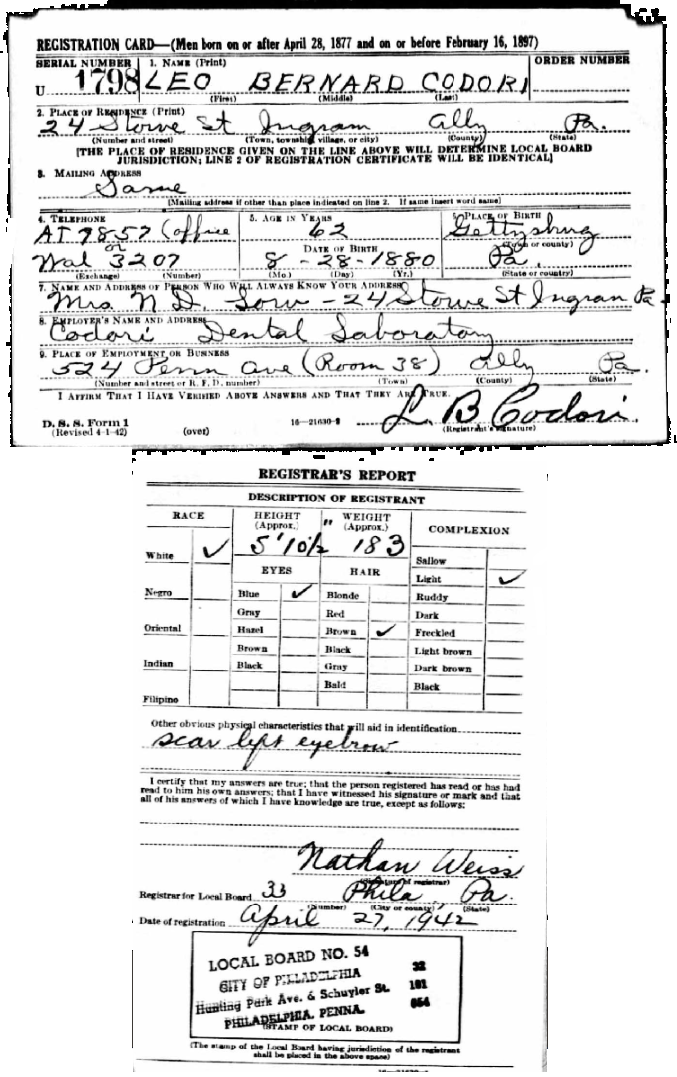 REGISTRATION CARD—(Men born on or after April 28, 1877 and on or before February 16, 1897)
SERIAL NUMBER 1. NAME (Print) ORDER NUMBER
U 1798 LEO BERNARD CODORI
(First) (Middle) (Last)
2. PLACE OF RESIDENCE (Print)
24 Stowe St Ingram Ally Pa.
(Number and street) (Town, township, village, or city) (County) (State)
[THE PLACE OF RESIDENCE GIVEN ON THE LINE ABOVE WILL DETERMINE LOCAL BOARD
JURISDICTION; LINE 2 OF REGISTRATION CERTIFICATE WILL BE IDENTICAL]
3. MAILING ADDRESS
Same
[Mailing address if other than place indicated on line 2. If same insert word same]
4. TELEPHONE 5. AGE IN YEARS 6. PLACE OF BIRTH
AT 7857 (office 62 Gettysburg
or DATE OF BIRTH (Town or county)
Wal 3207 8 - 28 - 1880 Pa.
(Exchange) (Number) (Mo.) (Day) (Yr.) (State or country)
7. NAME AND ADDRESS OF PERSON WHO WILL ALWAYS KNOW YOUR ADDRESS
Mrs N. D. - 24 Stowe St Ingram Pa
8. EMPLOYER'S NAME AND ADDRESS
Codori Dental Laboratory
9. PLACE OF EMPLOYMENT OR BUSINESS
524 Penn Ave (Room 38) Ally Pa.
(Number and street or R. F. D. number) (Town) (County) (State)
I AFFIRM THAT I HAVE VERIFIED ABOVE ANSWERS AND THAT THEY ARE TRUE.
L. B Codori
D. S. S. Form 1
(Revised 4-1-42) (over) 16—21630-2 (Registrant's signature)
REGISTRAR'S REPORT
DESCRIPTION OF REGISTRANT
RACE HEIGHT (Approx.) WEIGHT (Approx.) COMPLEXION
White ✓ 5'10½" 183 Sallow
EYES HAIR Light ✓
Negro Blue ✓ Blonde Ruddy
Gray Red Dark
Oriental Hazel Brown ✓ Freckled
Brown Black Light brown
Indian Black Gray Dark brown
Bald Black
Filipino
Other obvious physical characteristics that will aid in identification
scar left eyebrow
I certify that my answers are true; that the person registered has read or has had
read to him his own answers; that I have witnessed his signature or mark and that
all of his answers of which I have knowledge are true, except as follows:
Nathan Weiss
(Signature of registrar)
Registrar for Local Board 33 Phila Pa.
(Number) (City or county) (State)
Date of registration April 27, 1942
LOCAL BOARD NO. 54
CITY OF PHILADELPHIA 32
Hunting Park Ave. & Schuyler St. 101
PHILADELPHIA, PENNA. 054
(STAMP OF LOCAL BOARD)
(The stamp of the Local Board having jurisdiction of the registrant
shall be placed in the above space)